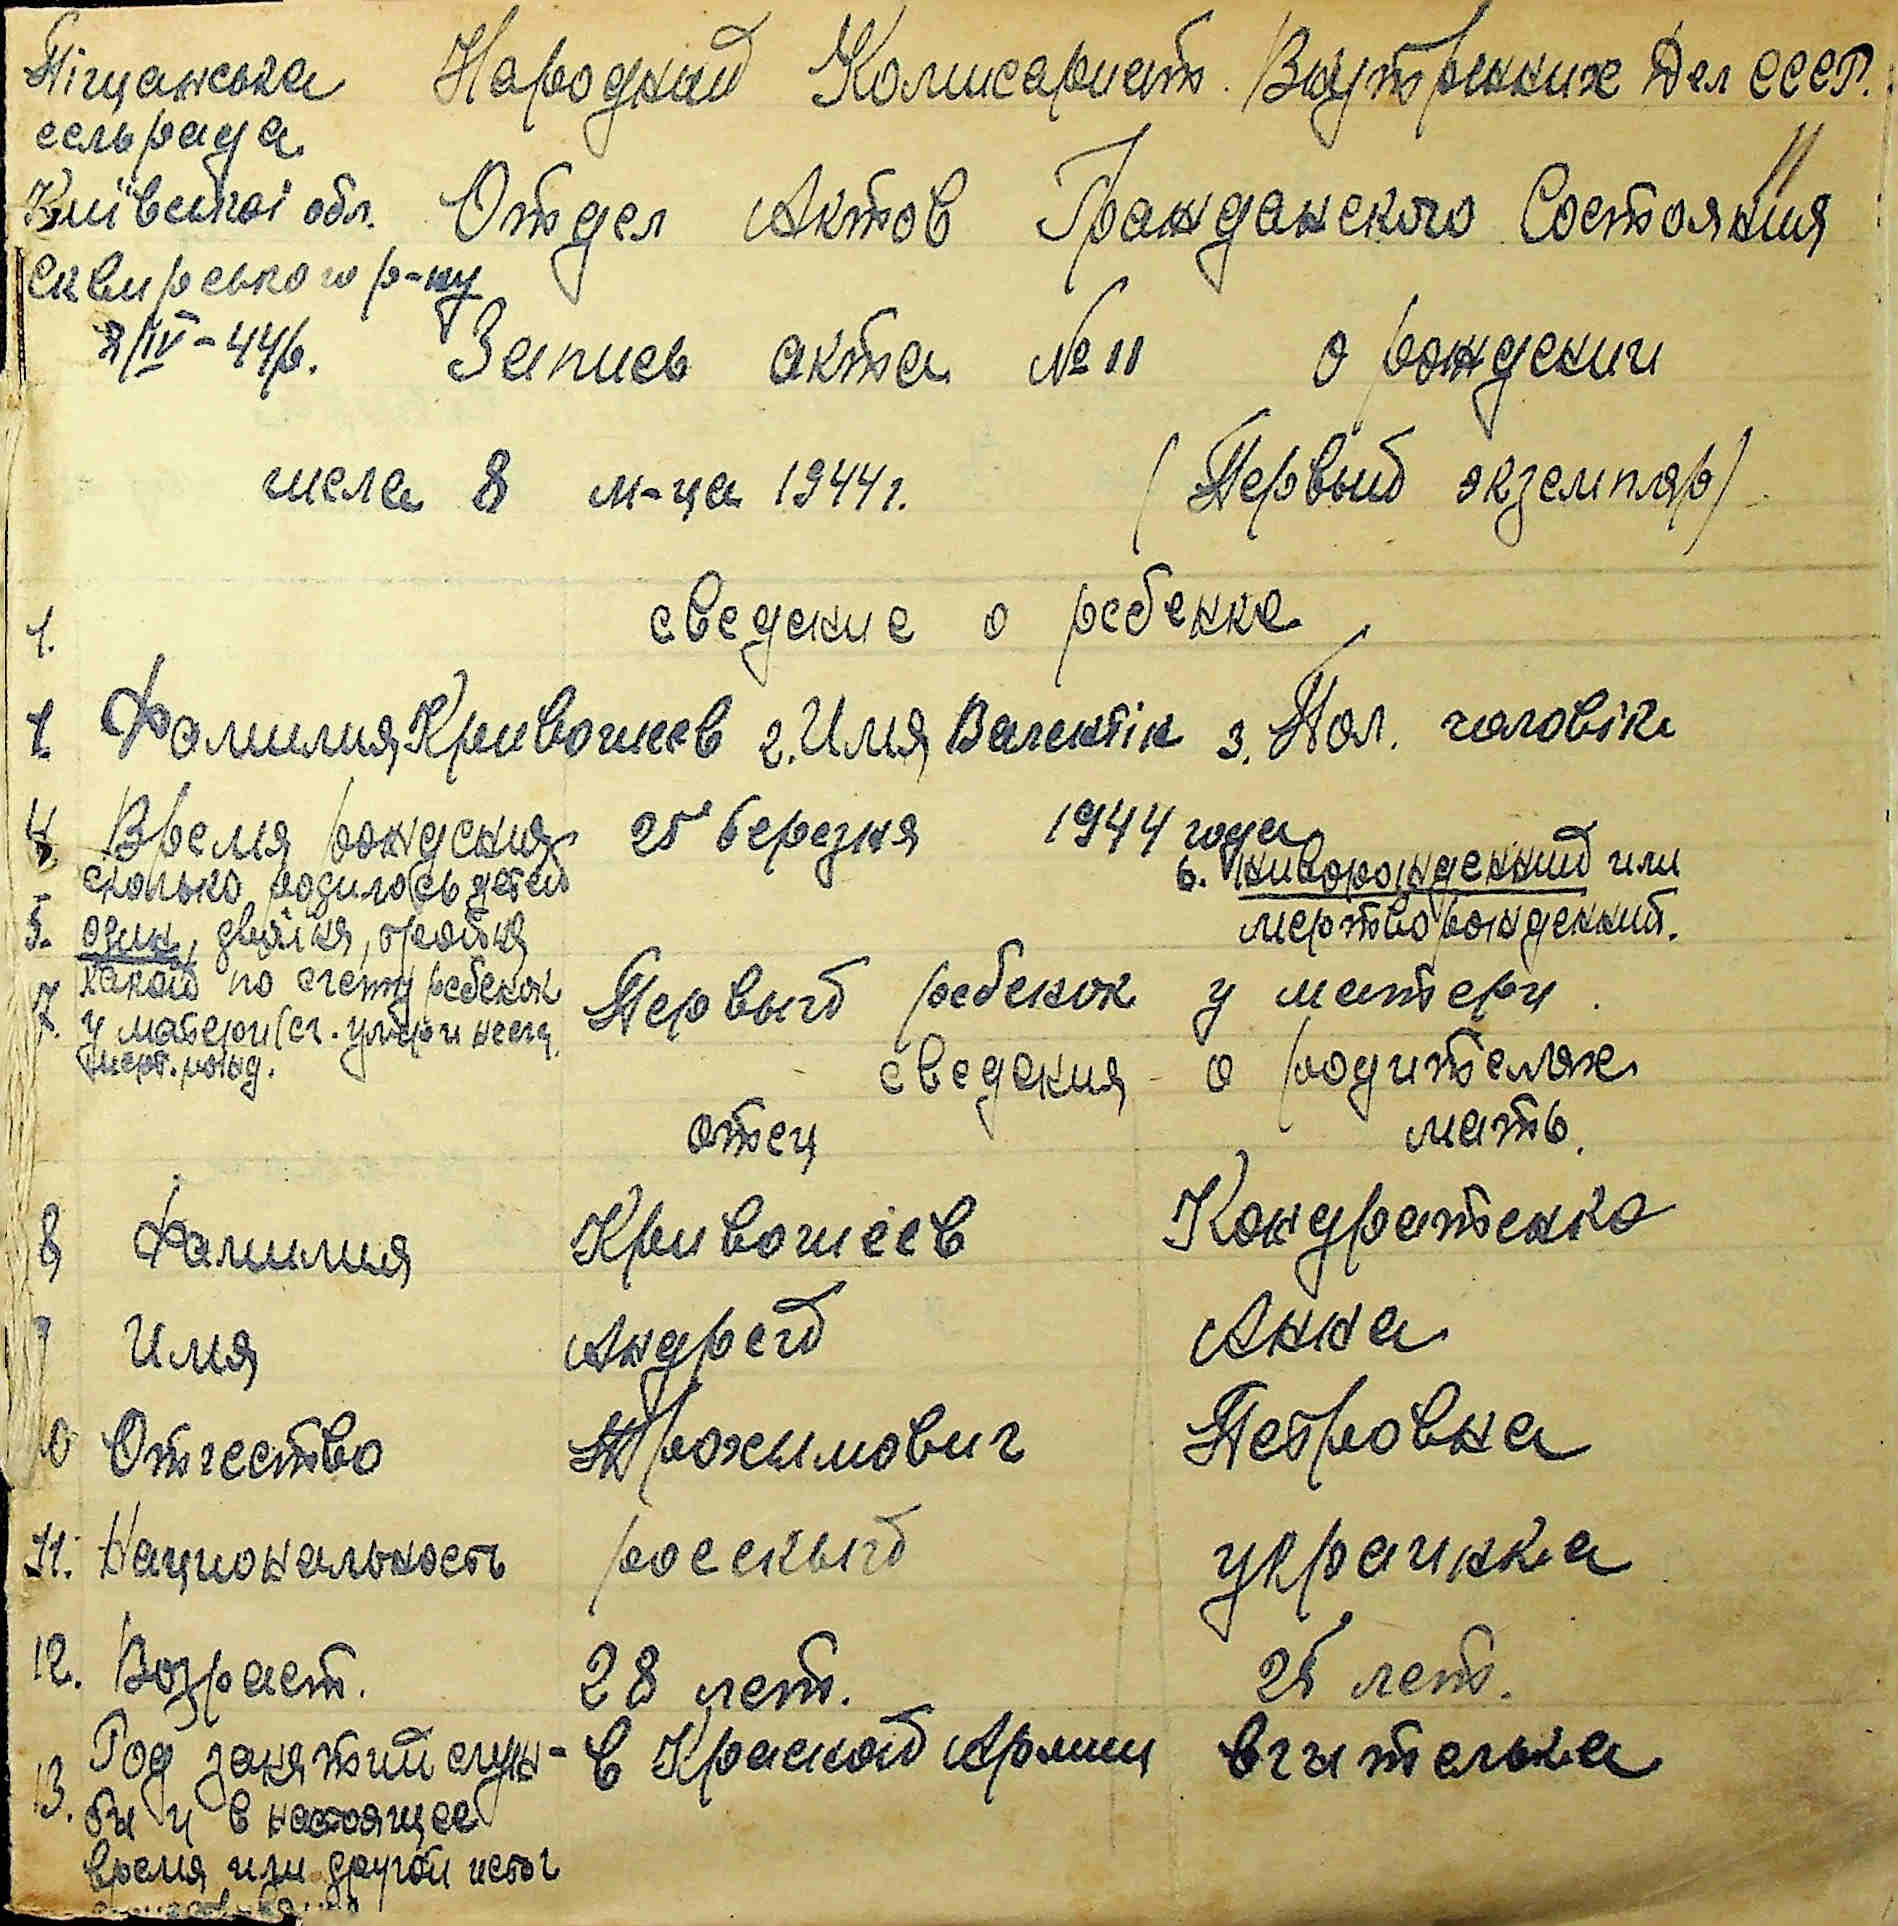 Пищанська
сельрада
Київської обл.
Сквирського р-ну
8/IV-44р.
Народный Комисариат Внутренних Дел СССР.
11
Отдел Актов Гражданского Состояния
Запись акта №11 о рождении
числа 8 м-ца 1944г. (Первый экземпляр)
1. сведение о ребенке
1. Фамилия Кривошеев 2. Имя Валентін 3. Пол. чоловік
4. Время рождения 25 березня 1944 года
сколько родилось детей
5. один, двойня, тройня
6. живорожденный или
мертворожденный.
7. какой по счету ребенок
у матери (сч. умерш и
мерт. рожд. Первый ребенок у матери.
сведения о родителях
отец мать.
8 Фамилия Кривошеев Кондратенко
9 Имя Андрей Анна
10 Отчество Трохимович Петровна
11. Национальность росскый украинка
12. Возраст. 28 лет. 25 лет.
13. Род занятий служ- в Красной Армии вчителька
бы и в настоящее
время или другой источ